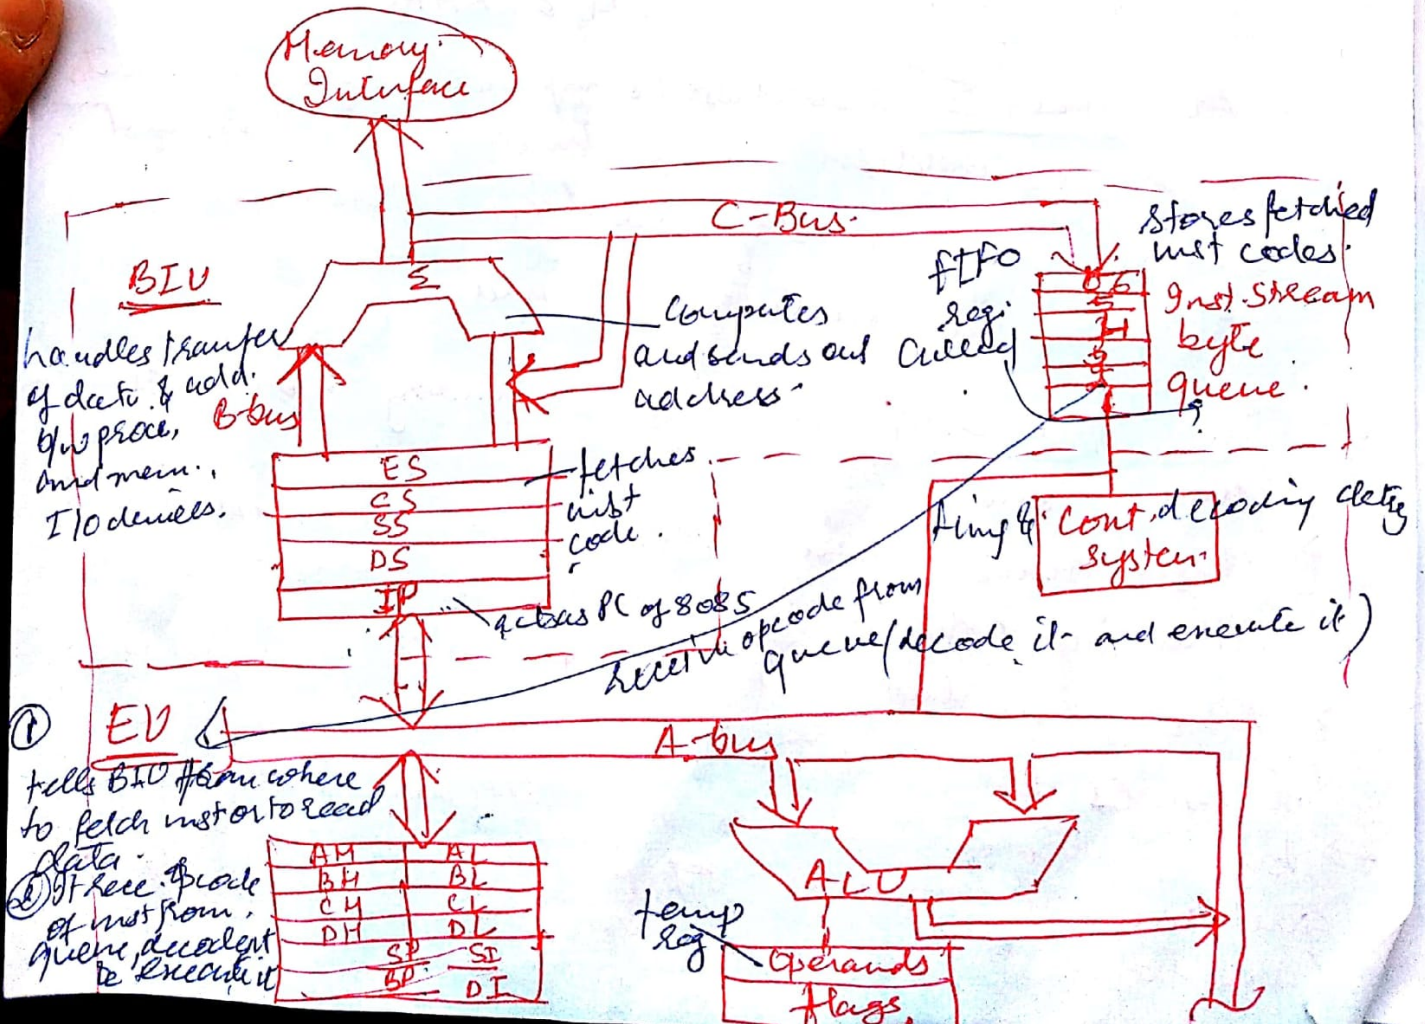 Memory
Interface
C-Bus
BIU
Σ
handles transfer
of data & add.
b/w proce,
and mem.,
I/O devices.
B-bus
Computes
and sends out
address
FIFO
regi
called
stores fetched
inst codes.
Inst. Stream
byte
queue.
6
5
4
3
2
1
ES
CS
SS
DS
IP
fetches
inst
code.
acts as PC of 8085
timg &
Cont.
system.
decoding
receive opcode from
queue (decode it and execute it)
EU
A-bus
① tells BIU from where
to fetch inst or to read
data.
② It rece. opcode
of inst from
queue, decodes it
& execute it
AH AL
BH BL
CH CL
DH DL
SP SI
BP DI
ALU
temp
reg
Operands
flags